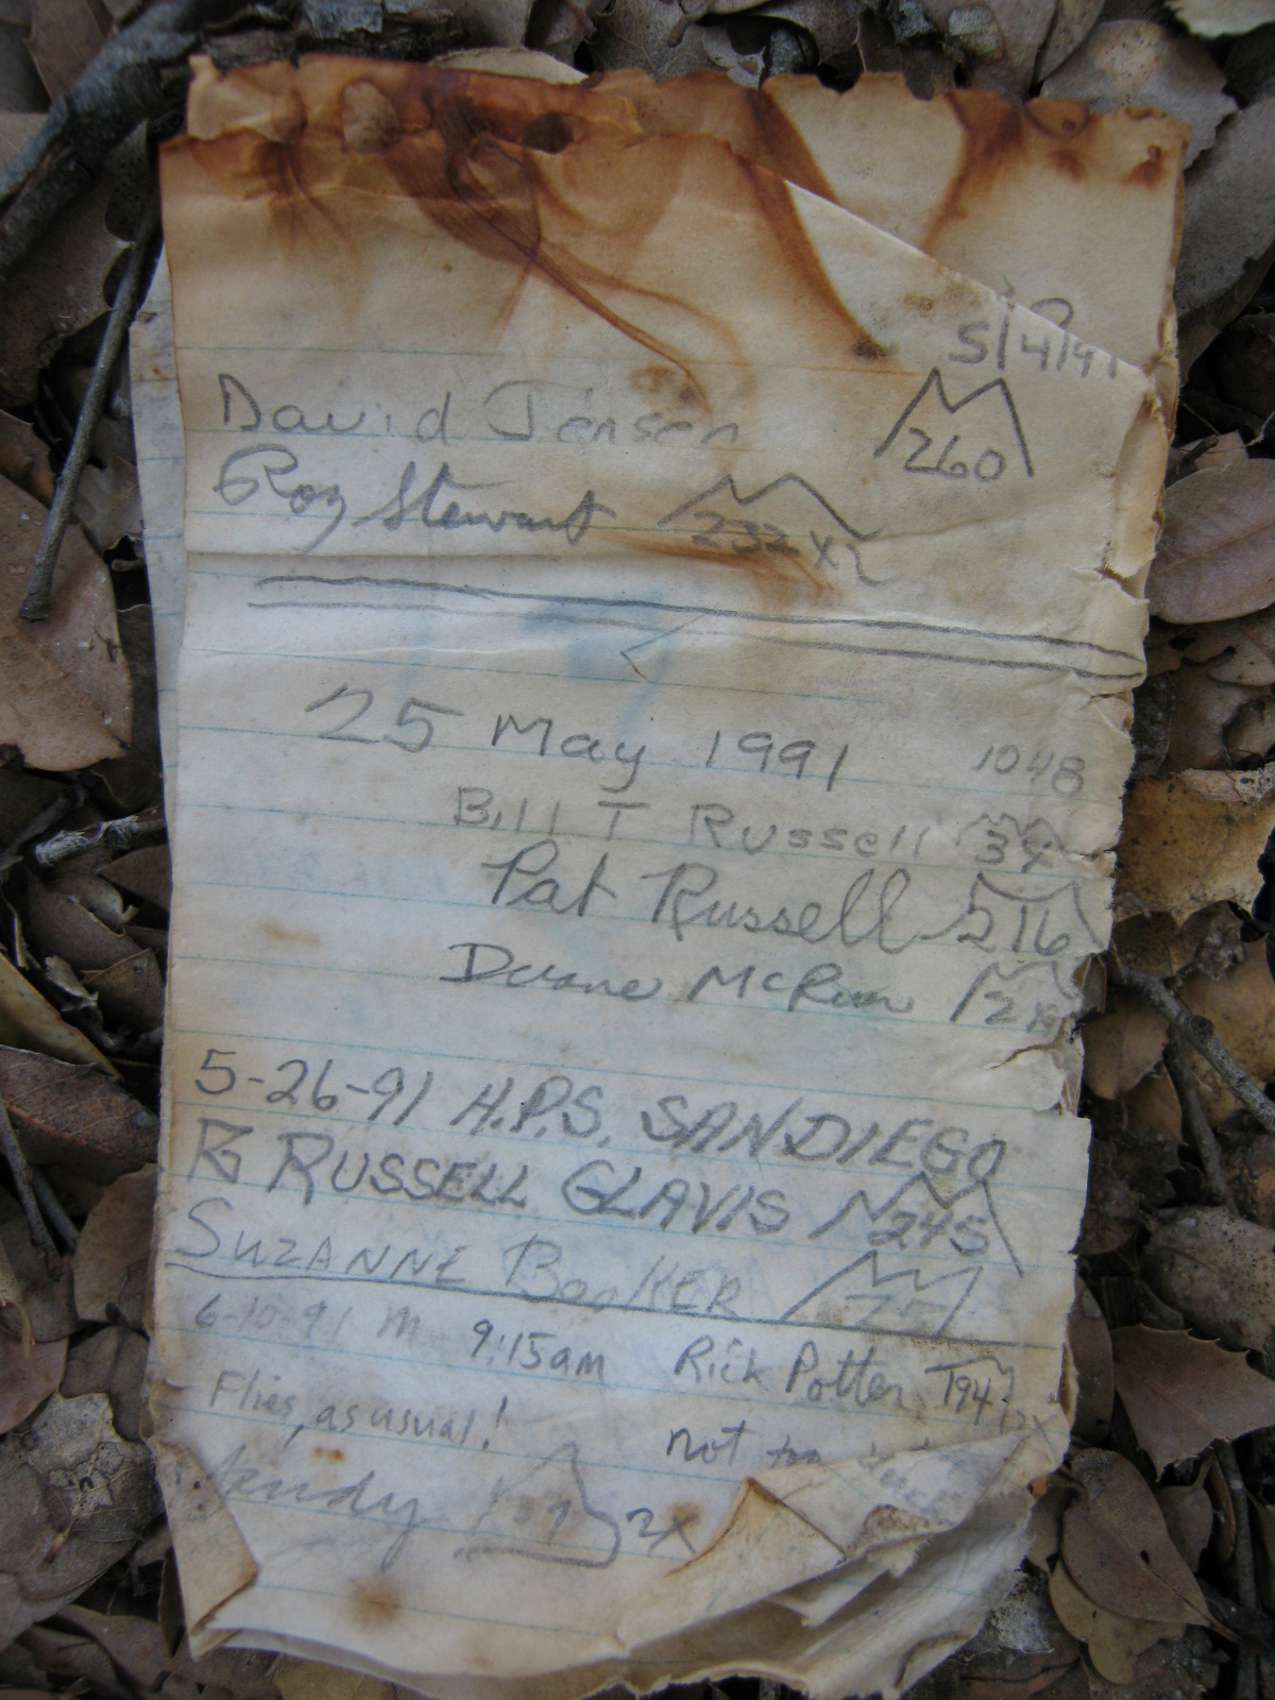 5/4/91
David Jensen 260
Roy Stewart 232 x2
25 May 1991 1048
Bill T Russell 3x
Pat Russell 216
Duane McRuer 2x
5-26-91 H.P.S. SAN DIEGO
R RUSSELL GLAVIS 245
SUZANNE BooKER 251
6-10-91 M 9:15am Rick Potter 194
Flies, as usual! not too
2x